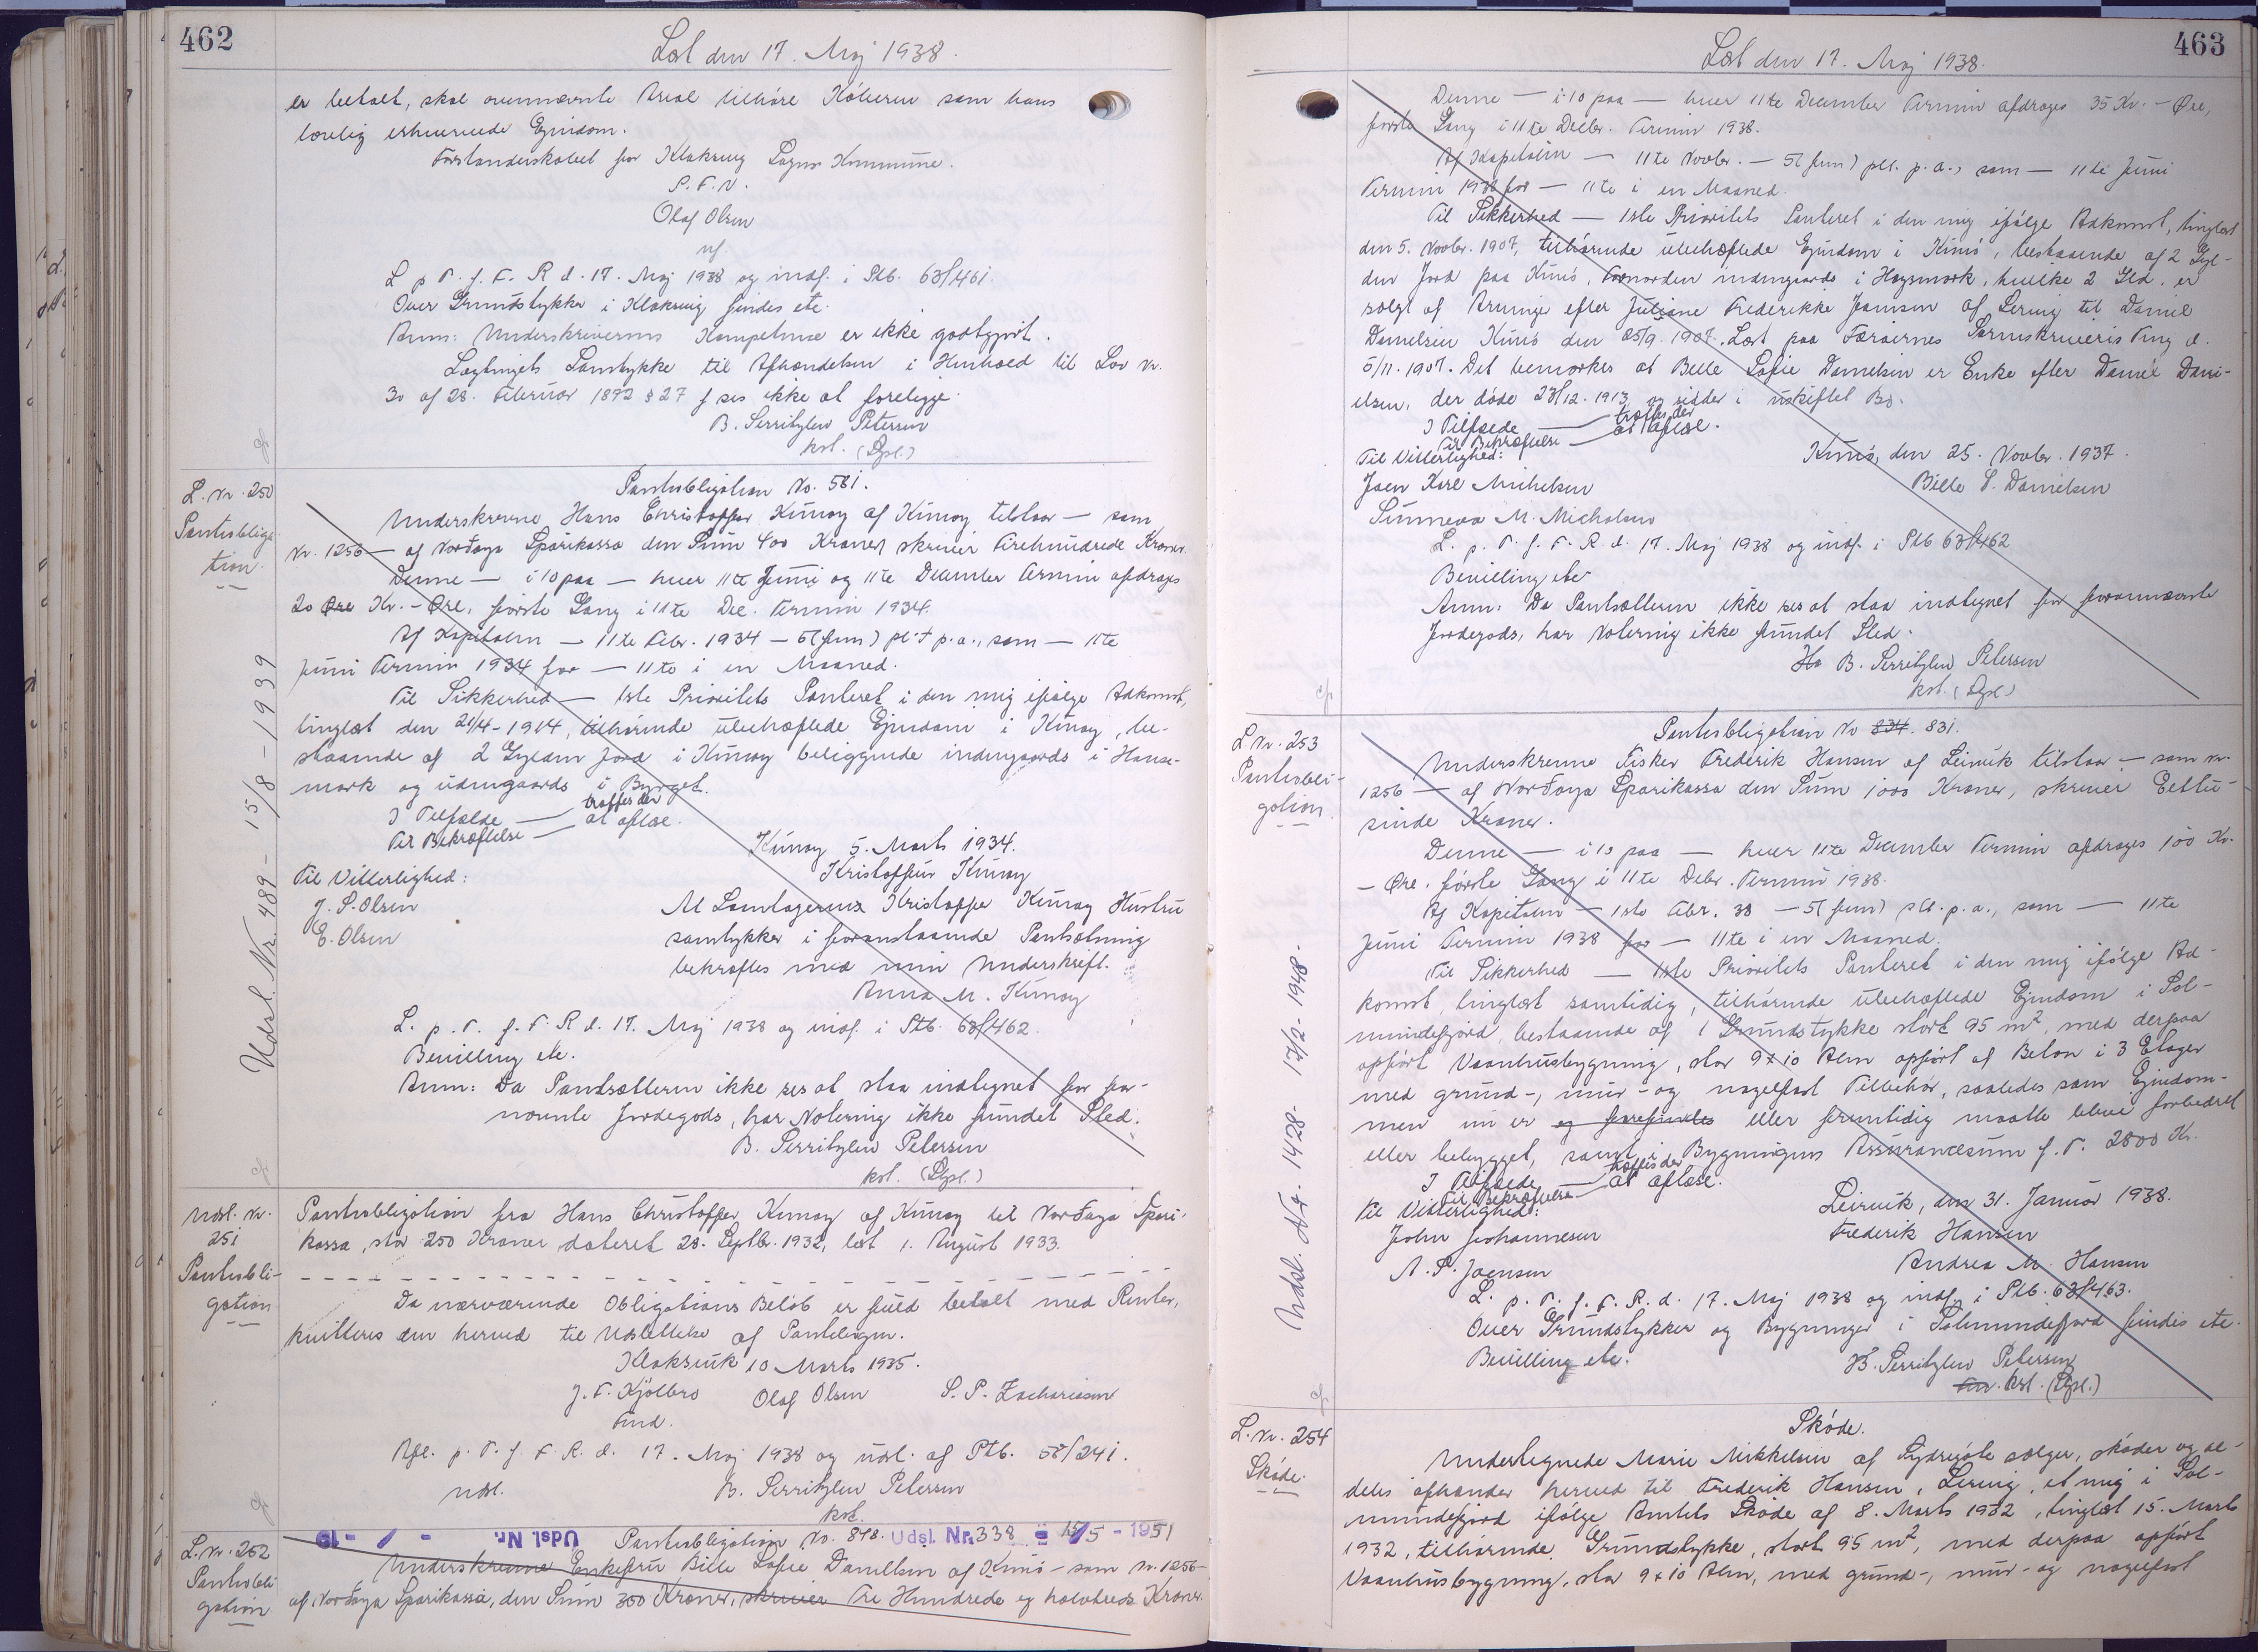 462
Læst den 17. Maj 1938.
er betalt, skal ovennævnte Areal tilhøre Køberen som hans
lovlig erhvervede Ejendom.
Forstanderskabet for Klaksvig Sogns Kommune.
P. F. V.
Olaf Olsen
nf.
L. p. T. f. F. R. d. 17. Maj 1938 og indf. i Ptb. 63/461.
Over Grundstykker i Klaksvig findes etc.
Anm: Underskriverens Kompetence er ikke godtgjort.
Lagtingets Samtykke til Afhændelsen i Henhold til Lov Nr.
30 af 28. Februar 1892 § 27 f ses ikke at foreligge.
B. Serritzlew Petersen
kst. (Dpl.)
L. Nr. 250
Pantobliga-
tion.
Pantobligation No. 581.
Underskrevne Hans Christoffer Kunoy af Kunoy tilstaar — som
Nr. 1256 — af Norðoya Sparikassa den Sum 400 Kroner skriver Firehundrede Kroner.
Denne — i 10 paa — hver 11te Juni og 11te December Termin afdrages
20 Øre Kr. - Øre, første Gang i 11te Dec. Termin 1934.
Af Kapitalen — 11te Febr. 1934 — 5 (fem) pCt p.a., som — 11te
Juni Termin 1934 for — 11te i en Maaned.
Til Sikkerhed — 1ste Prioritets Panteret i den mig ifølge Adkomst,
tinglæst den 21/4 - 1914, tilhørende ubehæftede Ejendom i Kunoy, be-
staaende af 2 Gylden Jord i Kunoy beliggende indengaards i Hanse-
mark og udengaards i Byrget.
I Tilfælde — træffes der
Til Bekræftelse — at aflæse.
Kunoy 5. Marts 1934.
Kristoffur Kunoy
Til Vitterlighed:
J. S. Olsen
E. Olsen
At Lantagerens Kristoffer Kunoy Hustru
samtykker i foranstaaende Pantsætning
bekræftes med min Underskrift.
Anna M. Kunoy
L. p. T. f. F. R. d. 17. Maj 1938 og indf. i Ptb. 63/462.
Bevilling etc.
Anm: Da Pantsætteren ikke ses at staa indtegnet for for-
nævnte Jordegods, har Notering ikke fundet Sted.
B. Serritzlew Petersen
kst. (Dpl.)
Udsl. Nr. 489 - 15/8 - 1939
Udsl. Nr.
251
Pantobli-
gation
Pantobligation fra Hans Christoffer Kunoy af Kunoy til Norðoya Spari-
kassa, stor 250 Kroner dateret 28. Septbr. 1932, læst 1. August 1933.
Da nærværende Obligations Beløb er fuld betalt med Renter,
kvitteres den herved til Udslettelse af Pantebogen.
Klaksvik 10 Marts 1935.
J. F. Kjølbro Olaf Olsen S. P. Zachariasen
Fmd.
Afl. p. T. f. F. R. d. 17. Maj 1938 og udsl. af Ptb. 58/241.
Udsl. B. Serritzlew Petersen
kst.
L. Nr. 252
Pantobli
gation
Udsl. Nr. - / - 19
Pantobligation No. 848.
Udsl. Nr. 338 - 15/5 - 1951
Underskrevne Enkefru Bille Sofie Daniellsen af Kunø - som Nr. 1256 -
af Norðoya Sparikassa, den Sum 350 Kroner, skriver Tre Hundrede og halvtreds Kroner.
463
Læst den 17. Maj 1938.
Denne — i 10 paa — hver 11te December Termin afdrages 35 Kr. - Øre,
første Gang i 11te Decbr. Termin 1938.
Af Kapitalen — 11te Novbr. — 5 (fem) pCt. p.a., som — 11te Juni
Termin 1938 for — 11te i en Maaned.
Til Sikkerhed — 1ste Prioritets Panteret i den mig ifølge Adkomst, tinglæst
den 5. Novbr. 1907, tilhørende ubehæftede Ejendom i Kunø, bestaaende af 2 Gyl-
den Jord paa Kunø, Fornorden indengaards i Haysmork, hvilke 2 Gld. er
solgt af Arvinge efter Juliane Frederikke Joensen af Lervig til Daniel
Danielsen Kunø den 25/9. 1907. Læst paa Færøernes Sorenskriveris Ting d.
5/11. 1907. Det bemærkes at Bille Sofie Danielsen er Enke efter Daniel Dani-
elsen, der døde 23/12. 1913 og sidder i uskiftet Bo.
I Tilfælde — træffes der
Til Bekræftelse — at aflæse.
Til Vitterlighed:
Kunø, den 25. Novbr. 1937.
Joen Karl Michelsen
Bille S. Danielsen
Sunneva M. Michelsen
L. p. T. f. F. R. d. 17. Maj 1938 og indf. i Ptb 63/462
Bevilling etc
Anm: Da Pantsætteren ikke ses at staa indtegnet for forannævnte
Jordegods, har Notering ikke fundet Sted.
B. Serritzlew Petersen
kst. (Dpl.)
L. Nr. 253
Pantobli-
gation.
Pantobligation No 834. 831.
Underskrevne Fisker Frederik Hansen af Leirvik tilstaar — som Nr.
1256 — af Norðoya Sparikassa den Sum 1000 Kroner, skriver Eettu-
sinde Kroner.
Denne — i 10 paa — hver 11te December Termin afdrages 100 Kr.
- Øre, første Gang i 11te Debr. Termin 1938.
Af Kapitalen — 1ste Febr. 38 — 5 (fem) pCt. p.a., som — 11te
Juni Termin 1938 for — 11te i en Maaned.
Til Sikkerhed — 1ste Prioritets Panteret i den mig ifølge Ad-
komst, tinglæst samtidig, tilhørende ubehæftede Ejendom i Sol-
mundefjord, bestaaende af 1 Grundstykke stort 95 m², med derpaa
opført Vaanhusbygning, stor 9 x 10 Alen opført af Beton i 3 Etager
med grund-, mur- og nagelfast Tilbehør, saaledes som Ejendom-
men nu er og forefindes eller fremtidig maatte blive forbedret
eller bebygget, samt i Bygningens Assurancesum f. T. 2800 Kr.
I Tilfælde — træffes der
Til Bekræftelse — at aflæse.
Til Vitterlighed:
Leirvik, den 31. Januar 1938.
John Johannesen
Frederik Hansen
A. P. Joensen
Andrea M. Hansen
L. p. T. f. F. R. d. 17. Maj 1938 og indf. i Ptb. 63/463.
Over Grundstykker og Bygninger i Solmundefjord findes etc.
Bevilling etc.
B. Serritzlew Petersen
kst. (Dpl.)
Udsl. Nr. 1428 - 17/2 - 1948 -
L. Nr. 254
Skøde.
Skøde.
Undertegnede Marie Mikkelsen af Sydregøte sælger, skøder og al-
deles afhænder herved til Frederik Hansen, Lervig, et mig i Sol-
mundefjord ifølge Amtets Skøde af 8. Marts 1932, tinglæst 15. Marts
1932, tilhørende Grundstykke, stort 95 m², med derpaa opført
Vaanhusbygning, stor 9 x 10 Alen, med grund-, mur- og nagelfast